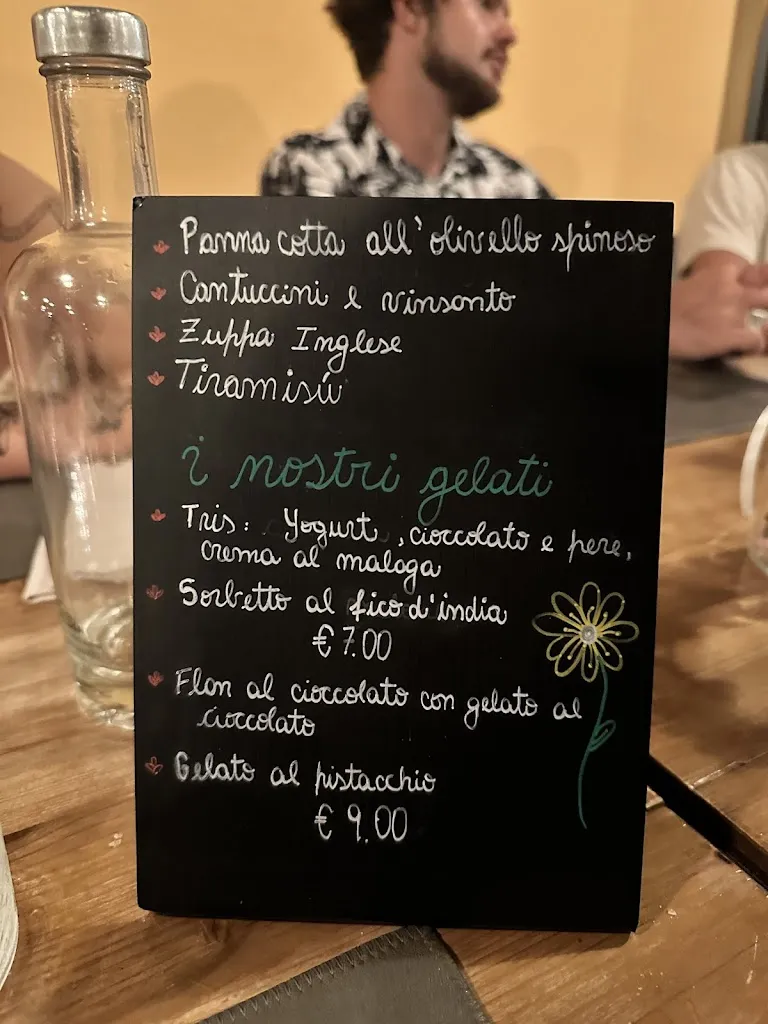 Panna cotta all'olivello spinoso
Cantuccini e vinsanto
Zuppa Inglese
Tiramisù
i nostri gelati
Tris: Yogurt, cioccolato e pere,
crema al malaga
Sorbetto al fico d'india
€ 7.00
Flan al cioccolato con gelato al
cioccolato
Gelato al pistacchio
€ 9.00